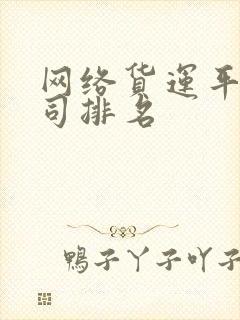 网络货运平
司排名
鴨子丫子吖子